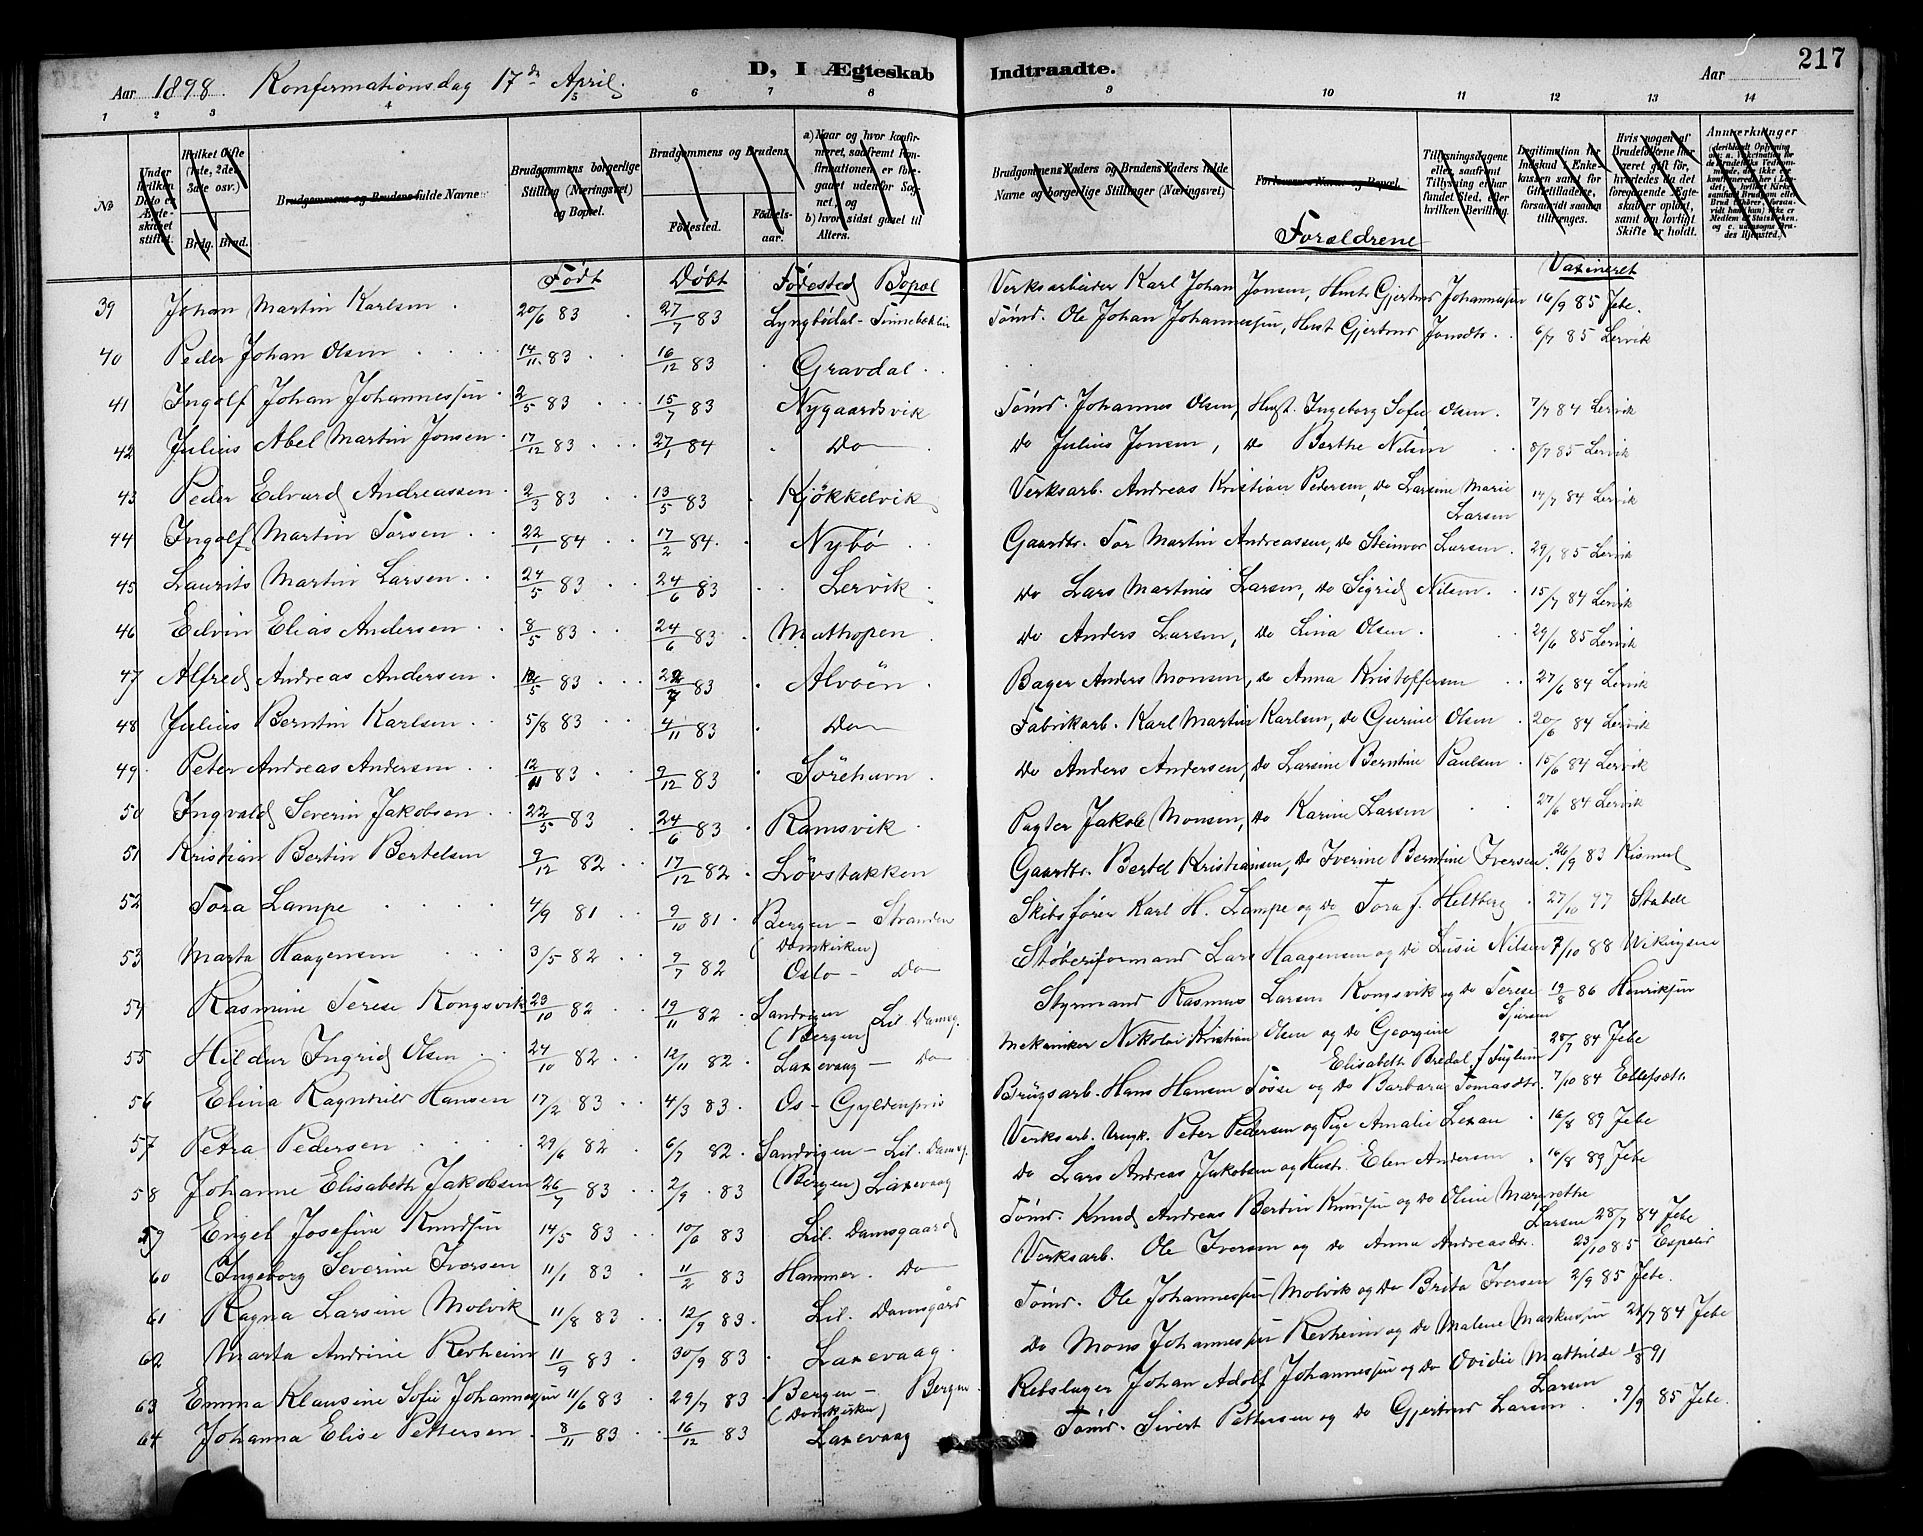 217
Aar 1898. Konfermationsdag 17de April.
D, I Ægteskab Indtraadte. Aar
1 2 3 4 5 6 7 8 9 10 11 12 13 14
No
Under hvilken Dato er Ægteskabet stiftet.
Hvilket Gifte (1ste, 2det, 3die osv.)
Brdg. Brud.
Brudgommens og Brudens fulde Navne
Brudgommens borgerlige Stilling (Næringsvei) og Bopæl.
Brudgommens og Brudens
Fødested. Fødselsaar.
a) Naar og hvor konfirmeret, saafremt Konfirmationen er foregaaet udenfor Sognet, og
b) hvor sidst gaaet til Alters.
Brudgommens Faders og Brudens Faders fulde Navne og borgerlige Stillinger (Næringsvei)
Forlovernes Navne og Bopæl.
Forældrene
Tillysningsdagene eller, saafremt Tillysning ei har fundet Sted, efter hvilken Bevilling.
Legitimation for Indskud i Enkekassen samt for Giftetilladelse, forsaavidt saadan tiltrænges.
Hvis nogen af Brudefolkene har været gift før, hvorledes da det foregaaende Ægteskab er opløst, samt om lovligt Skifte er holdt.
Anmerkninger
Født Døbt Fødested Bopæl Vaxineret
39 Johan Martin Karlsen 20/6 83 27/7 83 Lyngbödal - Verksarbeider Karl Johan Jonsen, Hust. Gjertrud Johannesen 16/9 85 Jebe.
40 Peder Johan Olsen 14/11 83 16/12 83 Gravdal Tömd. Ole Johan Johannessen, Hust Gjertrud Jonsdtr. 6/7 85 Lervik
41 Ingolf Johan Johannessen 2/5 83 15/7 83 Nygaardsvik Tömd. Johannes Olsen, Hust. Ingeborg Sofie Olsen. 7/7 84 Lervik
42 Julius Abel Martin Jonsen 17/12 83 27/1 84 Do Do Julius Jonsen, Do Berthe Nilsen 8/7 85 Lervik
43 Peder Edvard Andreassen 2/3 83 13/5 83 Kjøkkelvik Verksarb. Andreas Kristian Pedersen, Do Larsine Marie Larsen 14/7 84 Lervik
44 Ingolf Martin Torsen 22/1 84 17/2 84 Nybö Gaardbr. Tor Martin Andreassen, Do Steinvor Larsen 29/1 85 Lervik
45 Laurits Martin Larsen 24/5 83 24/6 83 Lervik Do Lars Martinus Larsen, Do Sigrid Nilsen 15/7 84 Lervik
46 Edvin Elias Andersen 8/5 83 24/6 83 Mathopen Do Anders Larsen, Do Lina Olsen 29/6 85 Lervik
47 Alfred Andreas Andersen /5 83 /7 83 Alvöen Bager Anders Monsen, Do Anna Kristoffersen 27/6 84 Lervik
48 Julius Berntin Karlsen 5/8 83 4/11 83 Do Fabrikarb. Karl Martin Karlsen, Do Gurine Olsen 20/6 84 Lervik
49 Peter Andreas Andersen 12/11 83 9/12 83 Sörehavn Do Anders Andersen, Do Larsine Berntine Paulsen 15/6 84 Lervik
50 Ingvald Severin Jakobsen 22/5 83 24/6 83 Ramsvik Pagter Jakob Monsen, Do Karine Larsen 27/6 84 Lervik
51 Kristian Bertin Bertelsen 9/12 82 17/12 82 Lövstakken Gaardbr. Bertel Kristiansen, Do Iverine Berntine Iversen 26/9 83 Kismul
52 Tora Lampe 4/9 81 9/10 81 Bergen - Stranden (Domkirken) Skibsförer Karl H. Lampe og Do Tora f. Heltberg 27/10 97 Stabell
53 Marta Haagensen 3/5 82 9/7 82 Oslo - Do Stöberiformand Lars Haagensen og Do Lusie Nilsen 7/10 88 Wikingsen
54 Rasmine Terese Kongsvik 23/10 82 19/11 82 Sandvigen (Bergen) Lil. Damsg. Styrmand Rasmus Larsen Kongsvik og Do Terese Sjursen 19/8 86 Henriksen
55 Hildur Ingrid Olsen 24/10 82 12/11 82 Laxevaag - Do Mekaniker Nikolai Kristian Olsen og Do Georgine Elisabeth Bredal f. Fuglum 20/7 84 Jebe
56 Elina Ragnhild Hansen 17/2 83 4/3 83 Os - Gyldenpris Brugsarb. Hans Hansen Töse og Do Barbara Tomasdtr. 7/10 84 Ellefsdtr.
57 Petra Pedersen 29/6 82 6/7 82 Sandvigen - Lil. Damsg. (Bergen) Verksarb. Ungk. Peter Pedersen og Pige Amalie Lexau 16/8 89 Jebe
58 Johanne Elisabeth Jakobsen 26/7 83 2/9 83 Laxevaag Do Lars Andreas Jakobsen og Hustr. Elen Andersen 16/8 89 Jebe
59 Engel Josefine Knudsen 14/5 83 10/6 83 Lil. Damsgaard Tömd. Knud Andreas Bertin Knudsen og Do Oline Margrethe Larsen 28/7 84 Jebe
60 Ingeborg Severine Iversen 11/1 83 11/2 83 Hammer. Do Verksarb. Ole Iversen og Do Anna Andreasdtr. 23/10 85 Espelid
61 Ragna Larsine Molvik 11/8 83 12/9 83 Lil. Damsgård Tömd. Ole Johannessen Molvik og Do Brita Iversen 2/9 85 Jebe.
62 Marta Andrine Revheim 11/9 83 30/9 83 Laxevaag. Do Mons Johannessen Revheim og Do Malene Markussen 21/7 84 Jebe
63 Emma Klausine Sofie Johannessen 11/6 83 29/7 83 Bergen - Bergen (Domkirken) Rebslager Johan Adolf Johannessen og Do Ovidie Mathilde Larsen 1/8 91
64 Johanna Elise Pettersen 8/11 83 16/12 83 Laxevaag Tömd. Sivert Pettersen og Do Gjertrud Larsen 9/9 85 Jebe.